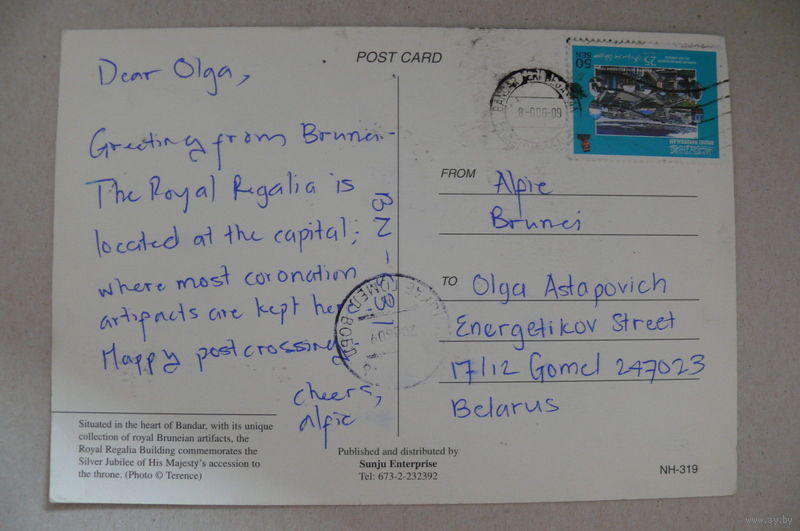 POST CARD
Dear Olga,
Greeting from Brunei-
The Royal Regalia is
located at the capital;
where most coronation
artifacts are kept here
Happy postcrossing
cheers,
alfie
BN-
Situated in the heart of Bandar, with its unique
collection of royal Bruneian artifacts, the
Royal Regalia Building commemorates the
Silver Jubilee of His Majesty's accession to
the throne. (Photo © Terence)
Published and distributed by
Sunju Enterprise
Tel: 673-2-232392
50
SEN
25
BRUNEI DARUSSALAM
BANDAR SERI
FROM Alfie
Brunei
TO Olga Astapovich
Energetikov Street
17/12 Gomel 247023
Belarus
NH-319
www.ay.by